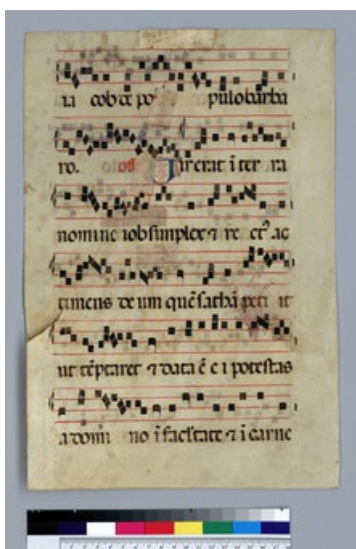 na cob de po pulo barba
ro. off Vir erat ī ter ra
nomine iob simplex ⁊ re ctꝰ ac
timens de um quē sathā peti it
ut tēptaret ⁊ data ē e i potestas
a domi no ī facl'tate ⁊ ī carne